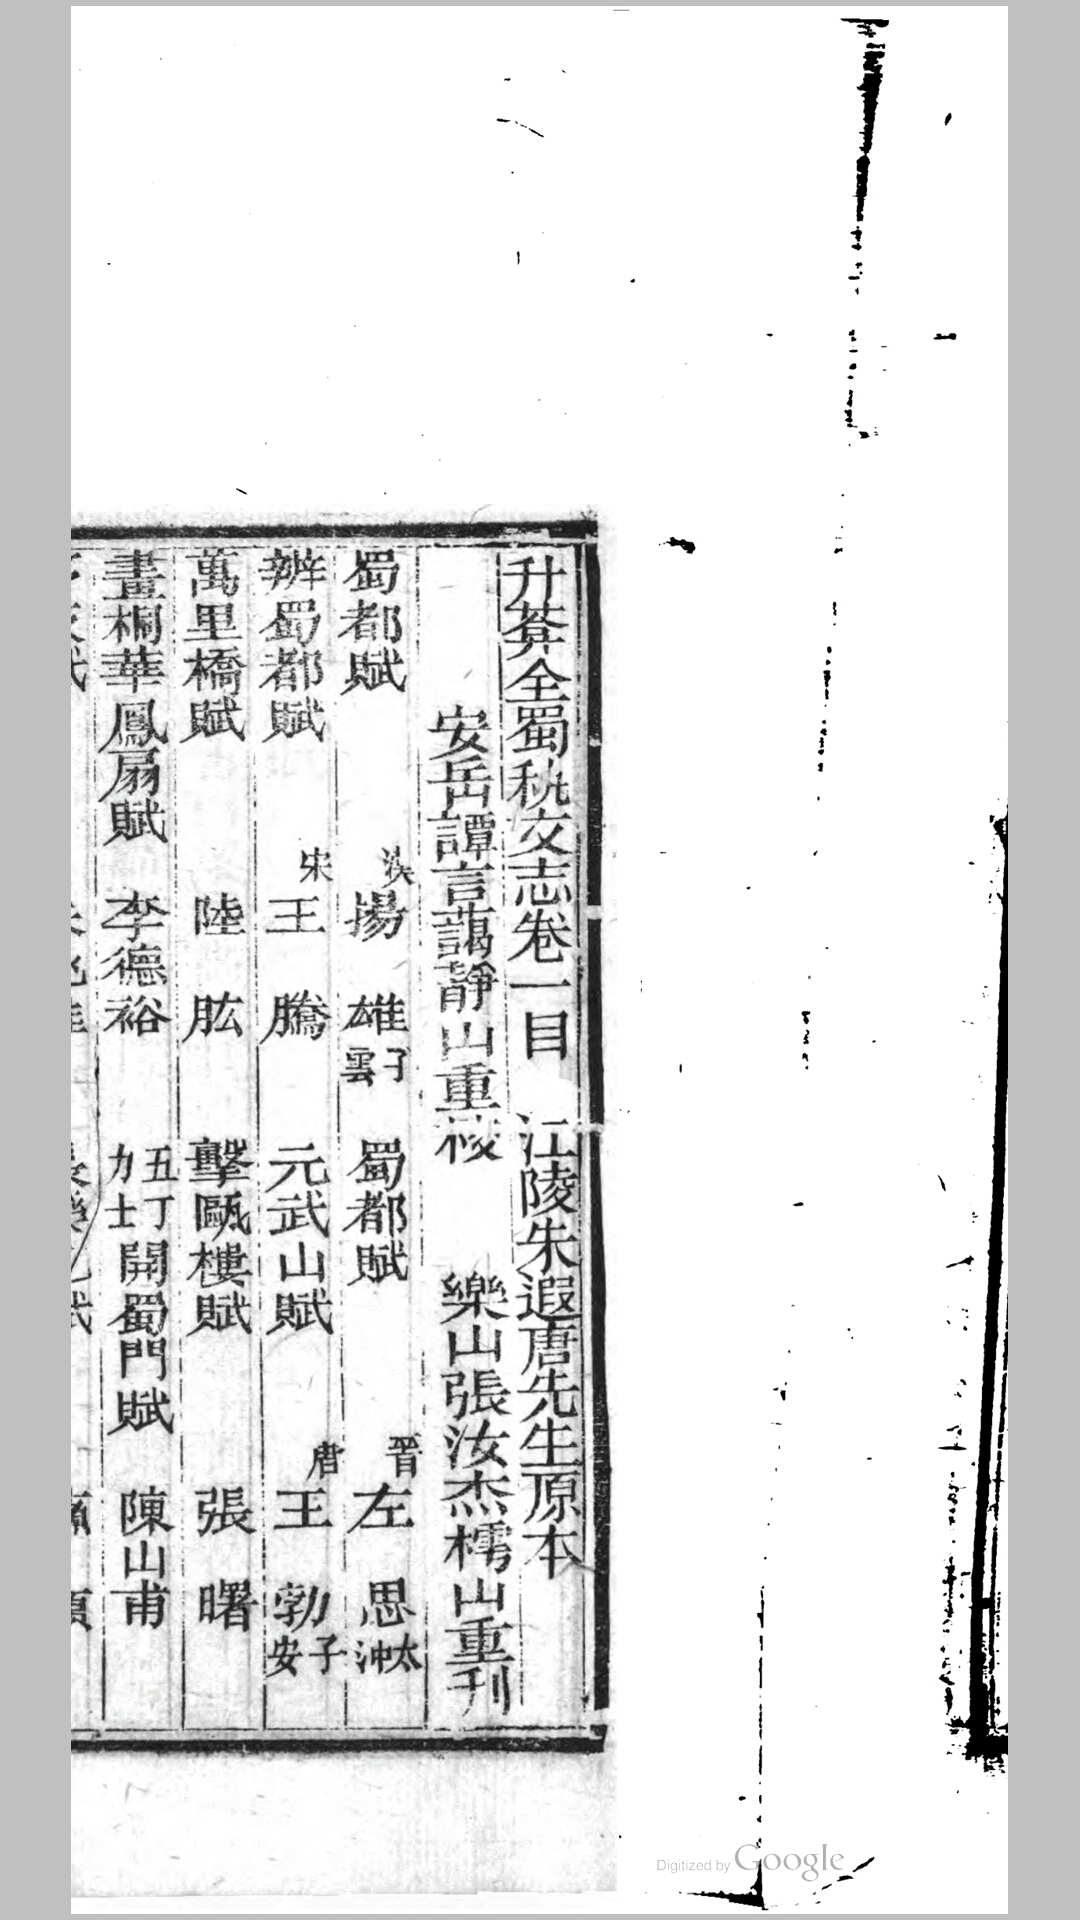 升菴全蜀秇文志卷一目　江陵朱遐唐先生原本
安岳譚言藹靜山重校　樂山張汝杰樗山重刊
蜀都賦　漢揚雄子雲　蜀都賦　晉左思太沖
辨蜀都賦　宋王騰　元武山賦　唐王勃子安
萬里橋賦　陸肱　擊甌樓賦　張曙
畫桐華鳳扇賦　李德裕　五丁力士開蜀門賦　陳山甫
Digitized by Google